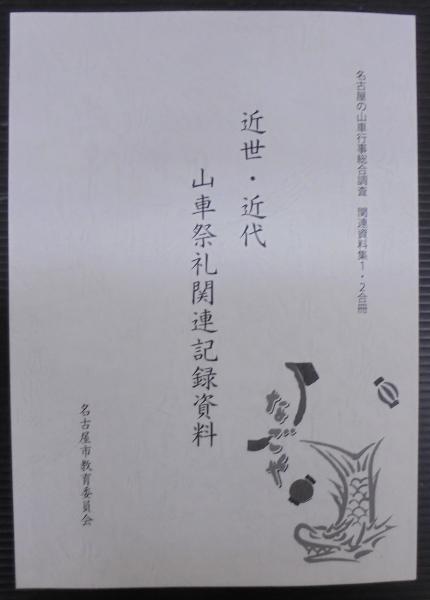 名古屋の山車行事総合調査 関連資料集1・2合冊
近世・近代
山車祭礼関連記録資料
なごや
名古屋市教育委員会